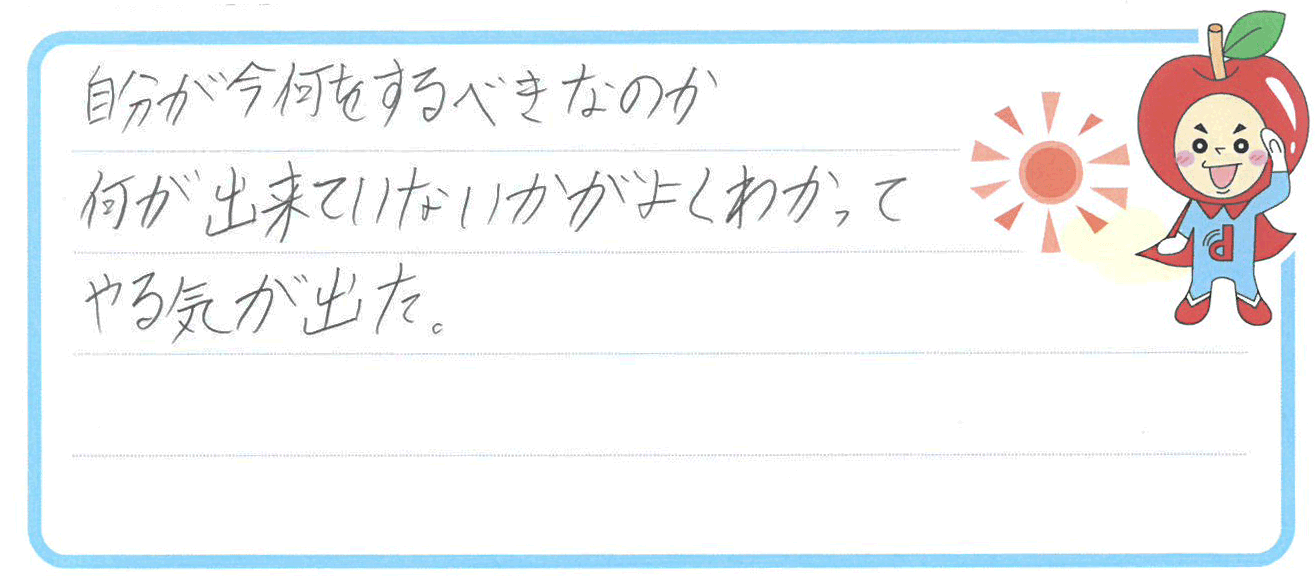 自分が今何をするべきなのか
何が出来ていないかがよくわかって
やる気が出た。